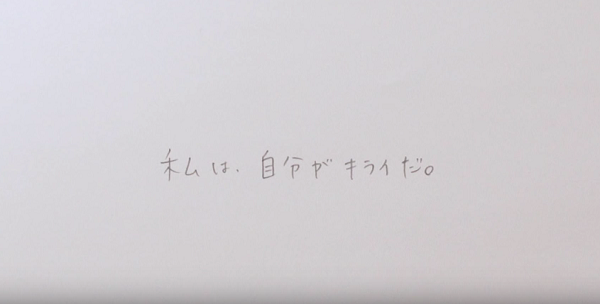 私は、自分がキライだ。